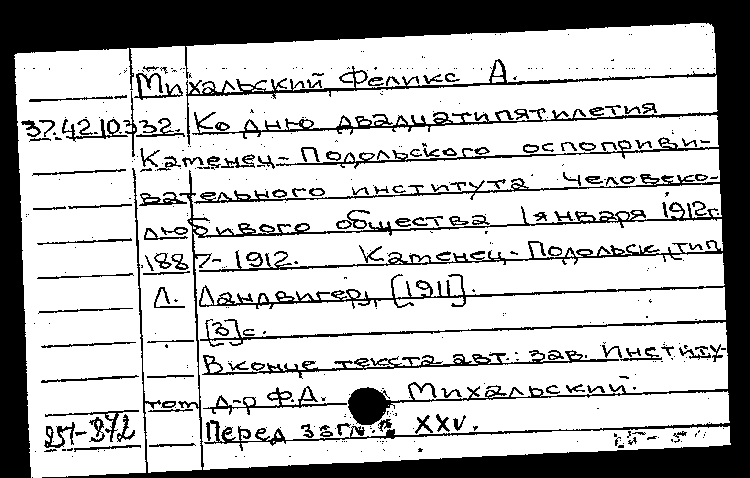 Михальский, Феликс А.
37.42.10.332. Ко дню двадцатипятилетия
Каменец-Подольского оспоприви-
вательного института Человеко-
любивого общества 1 января 1912г.
1887-1912. Каменец-Подольск, тип.
Л. Ландвигер, [1911].
[3]с.
В конце текста авт.: зав. Институ-
том д-р Ф.Д. Михальский.
Перед загл.: XXV.